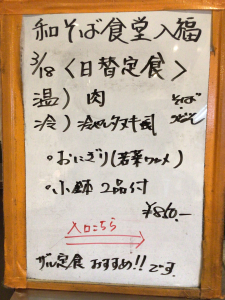 和そば食堂入福
3/18〈日替定食〉
温）肉 そば
冷）冷やしタヌキ うどん
○おにぎり（若菜ワカメ）
○小鉢2品付
¥860.-
入口こちら
ザル定食 おすすめ!!です